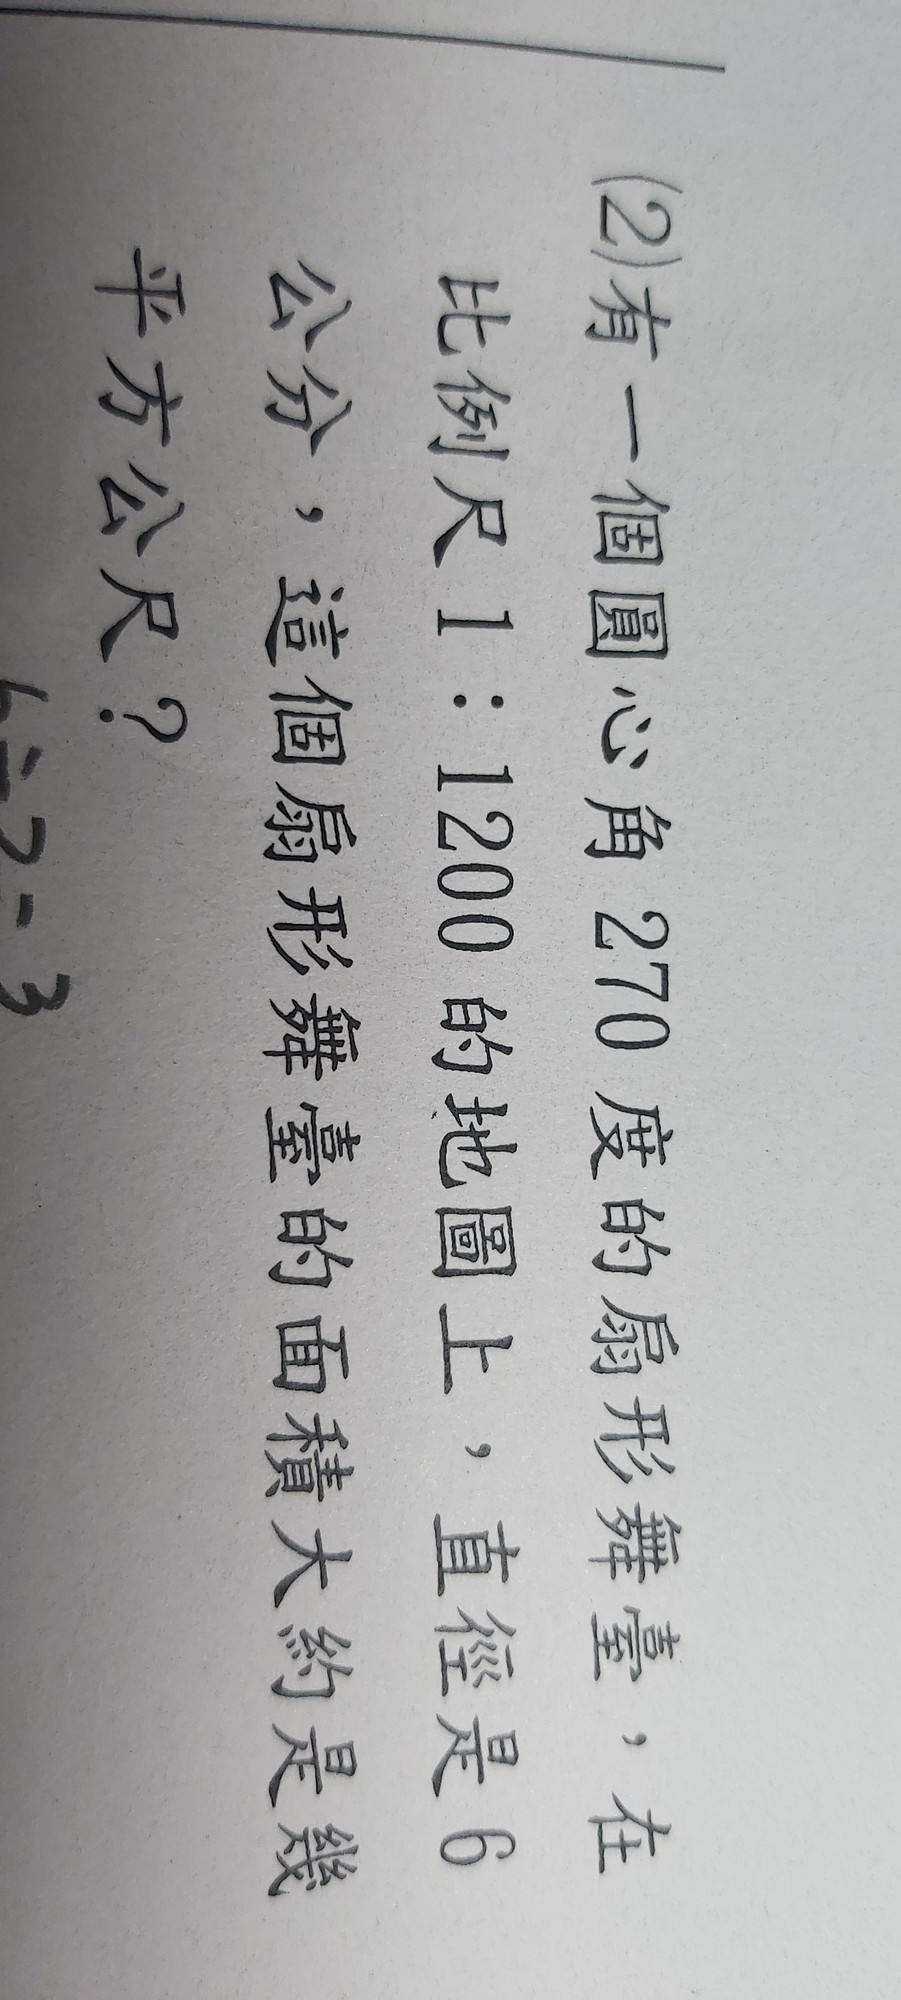 (2)有一個圓心角 270 度的扇形舞臺，在
比例尺 1：1200 的地圖上，直徑是 6
公分，這個扇形舞臺的面積大約是幾
平方公尺？
6÷2=3